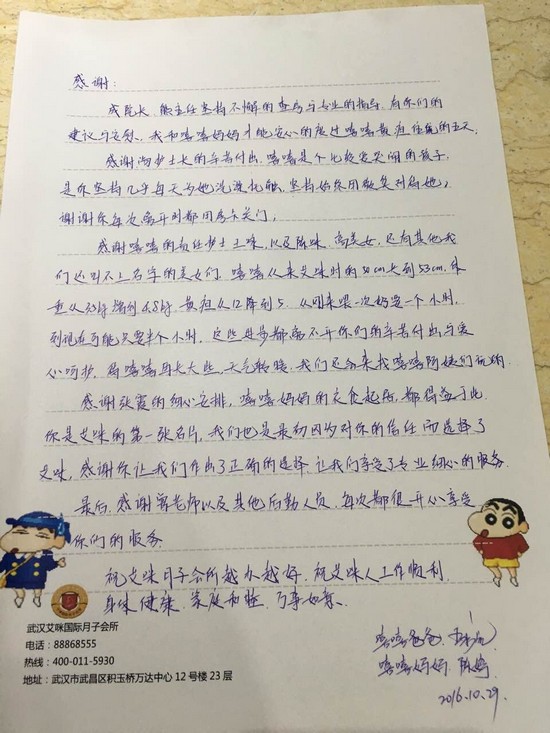 感谢:
成院长、熊主任坚持不懈的查房与专业的指导,有你们的
建议与安慰,我和嘻嘻妈妈才能安心的度过嘻嘻黄疸住院的五天。
感谢 护士长的辛苦付出,嘻嘻是个比较爱哭闹的孩子,
是你坚持几乎每天为她洗澡抚触,坚持始终用微笑对着她,
谢谢你每次离开时都用 关门,
感谢嘻嘻的责任护士王咪,以及陈咪、高美女,还有其他我
们还叫不上名字的美女们,嘻嘻从来艾咪时的50cm长到53cm,体
重从 增到4.8kg,黄疸从12降到5,从刚来喂一次奶要一个小时,
到现在可能只要半个小时,这些进步都离不开你们的辛苦付出与爱
心呵护。待嘻嘻再长大些,天气较暖,我们还会来找嘻嘻阿姨们玩的。
感谢张霞的细心安排,嘻嘻妈妈的衣食起居,都得益于此,
你是艾咪的第一张名片,我们也是最初因为对你的信任而选择了
艾咪,感谢你让我们作出了正确的选择,让我们享受了专业细心的服务。
最后,感谢 老师以及其他后勤人员,每次都很开心享受
你们的服务。
祝艾咪月子会所越办越好,祝艾咪人工作顺利,
身体健康、家庭和睦、万事如意。
嘻嘻爸爸:
嘻嘻妈妈:陈娟
2016.10.29.
武汉艾咪国际月子会所
电话:88868555
热线:400-011-5930
地址:武汉市武昌区积玉桥万达中心 12 号楼 23 层